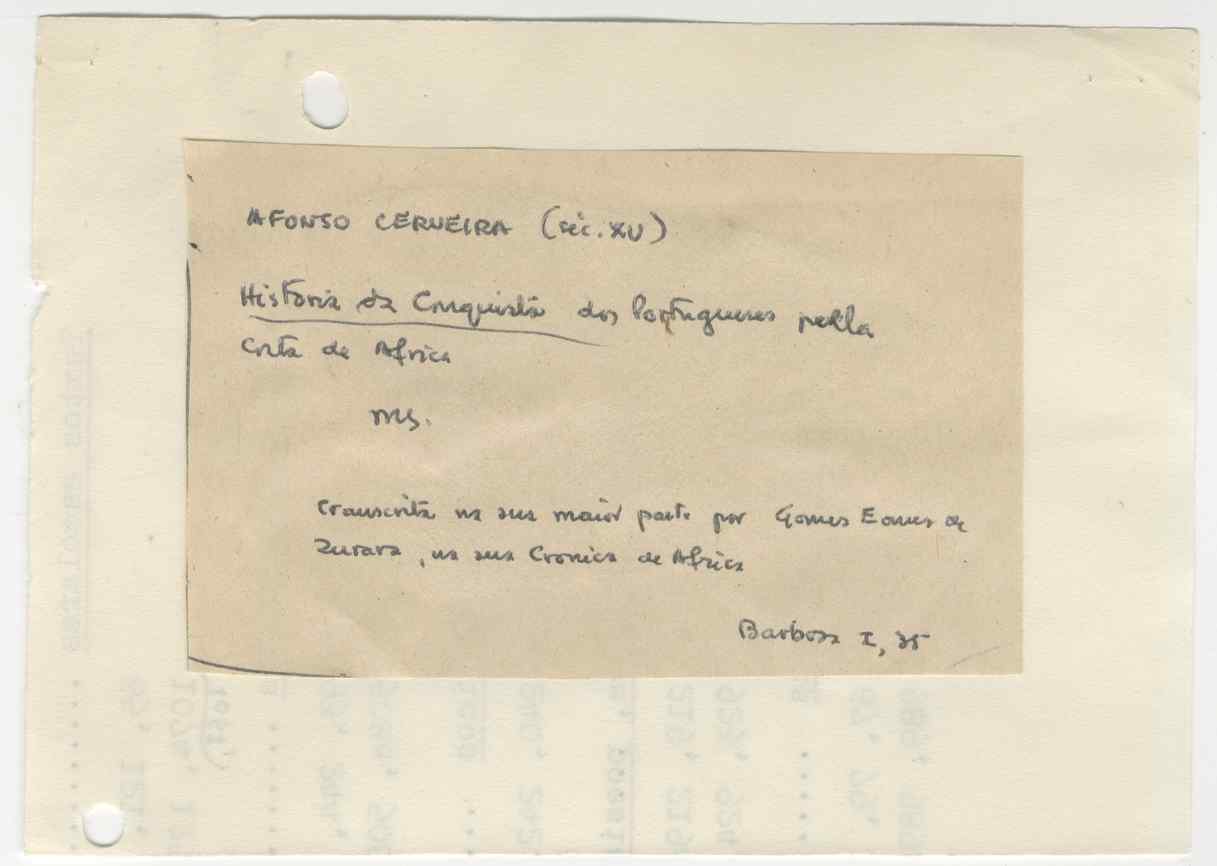 AFONSO CERVEIRA (séc. XV)
Historia da Conquista dos Portugueses pella
Costa de Africa
ms.
transcrita na sua maior parte por Gomes Eanes de
Zurara, na sua Cronica de Africa
Barbosa I, 35